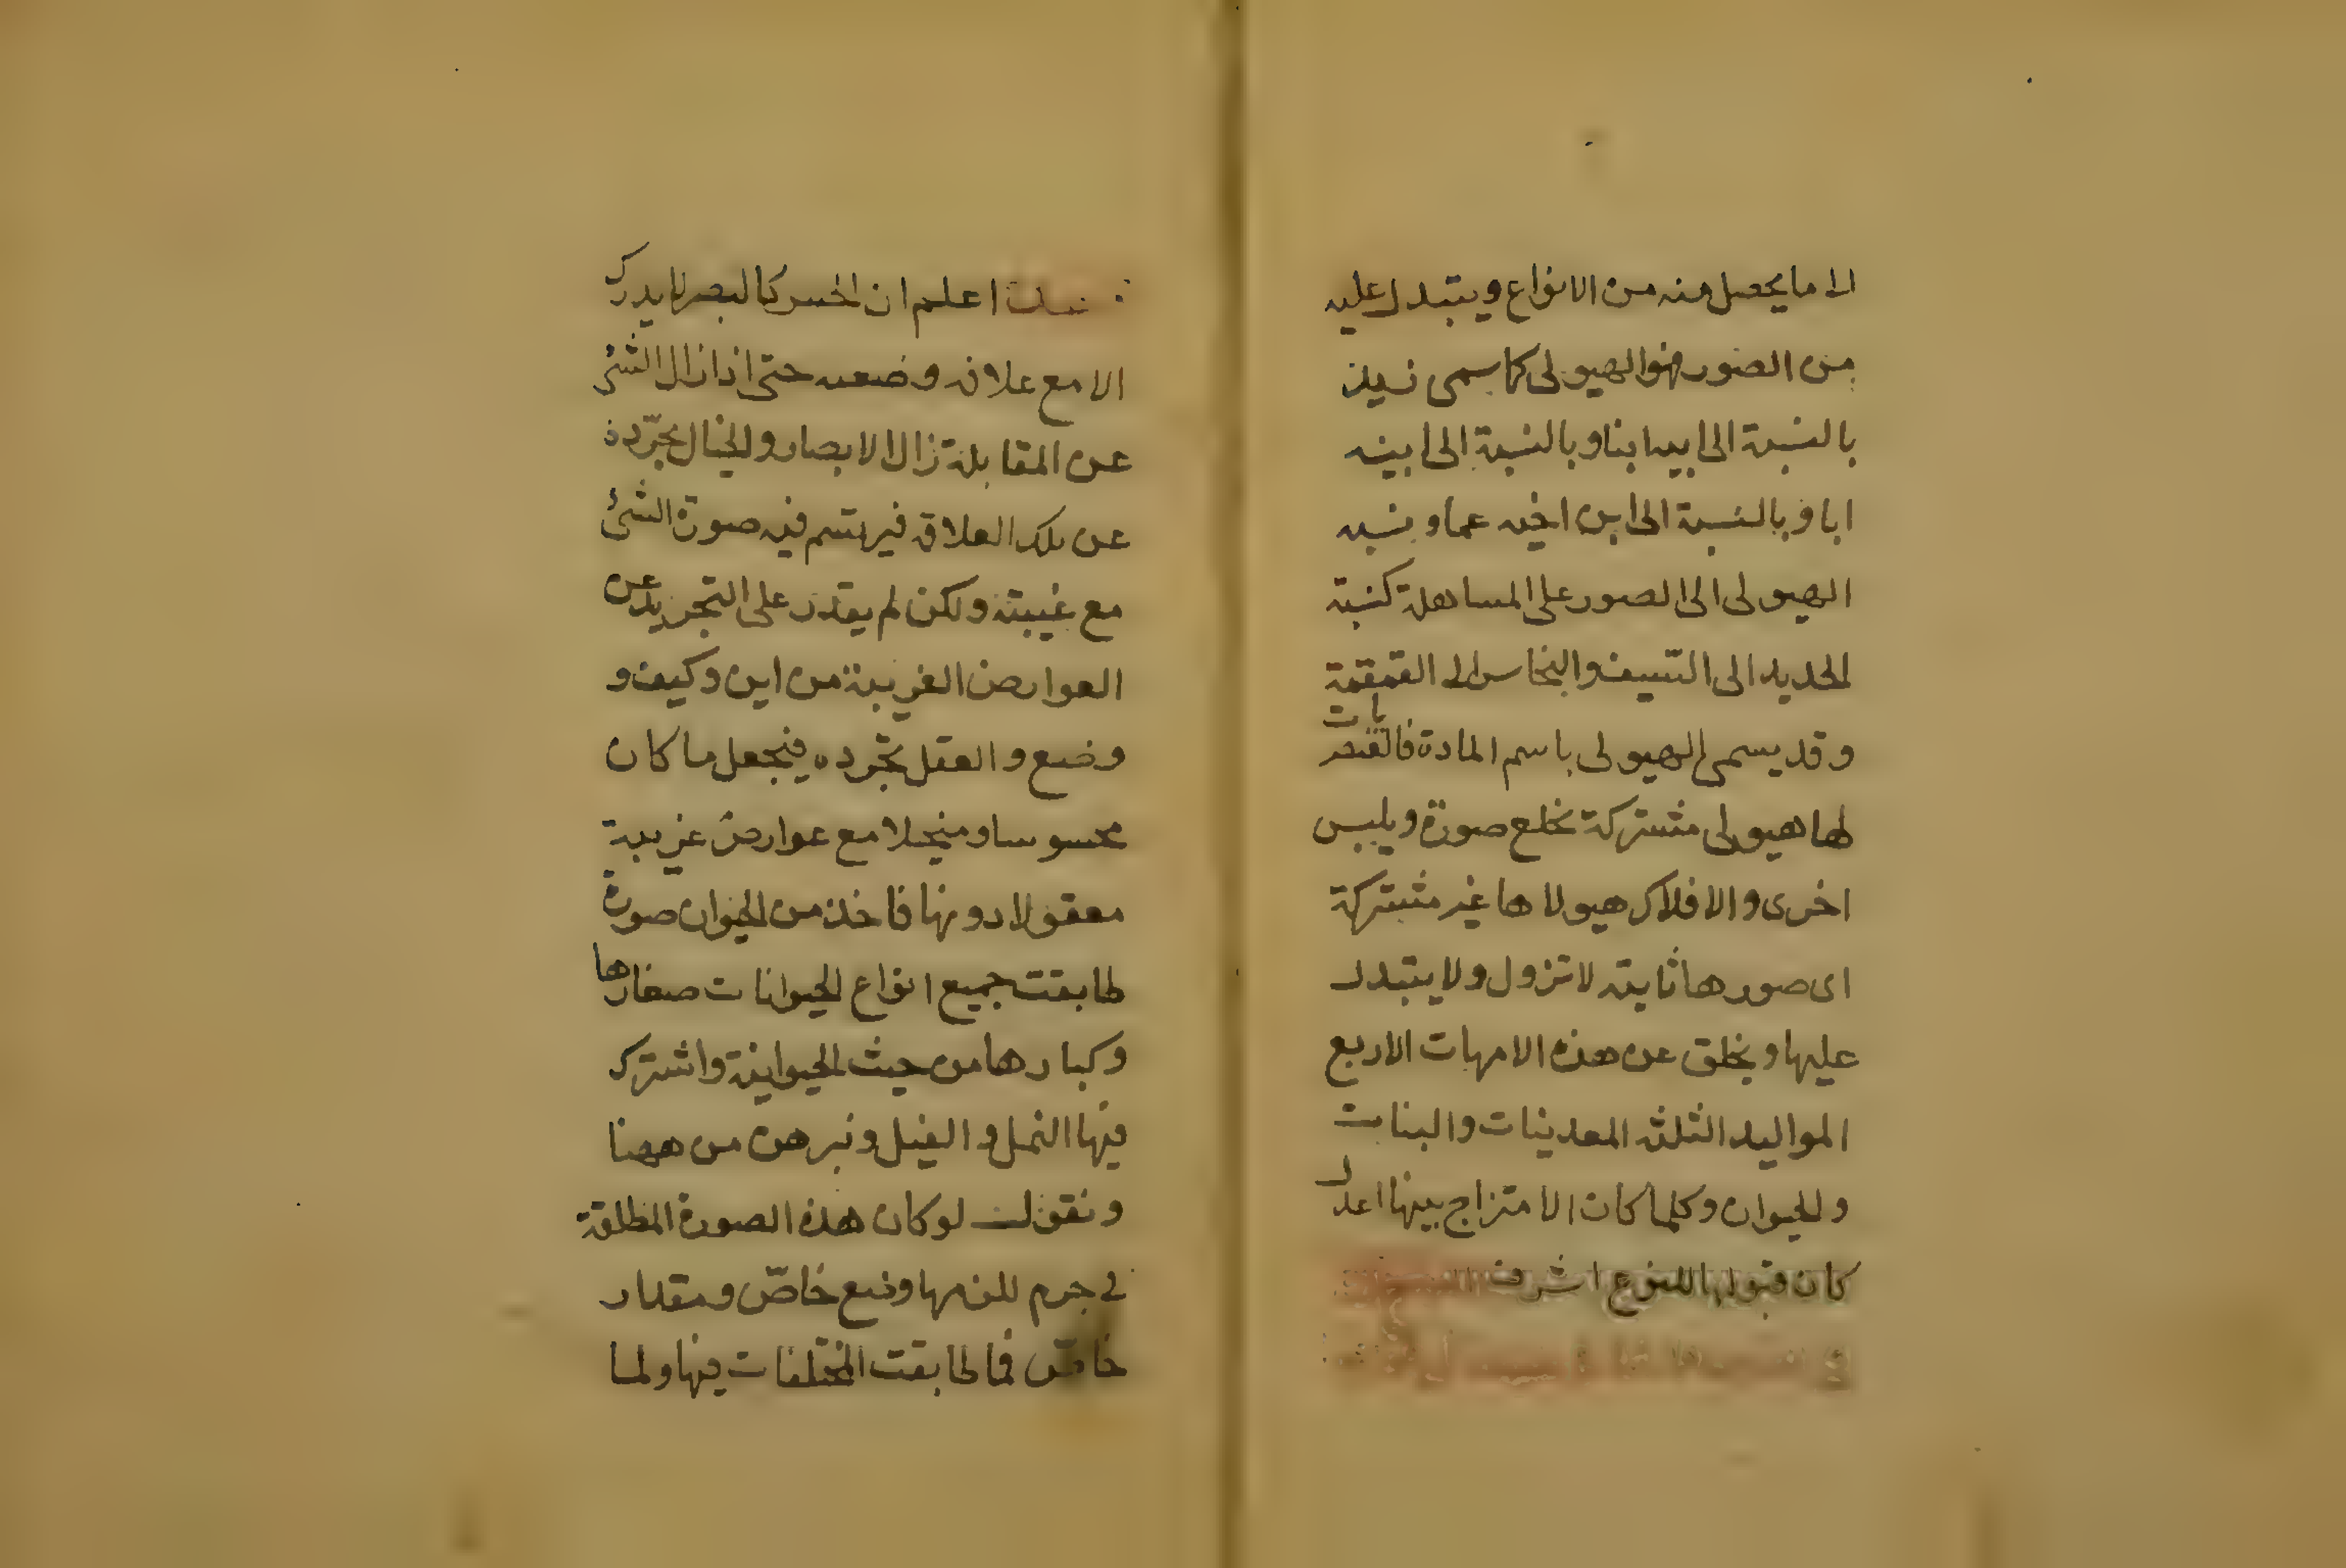 الا ما يحصل منه من الانواع ويتبدل عليه
من الصور فهو الهيولى كما سمى زيد
بالنسبة الى ابيه ابنا وبالنسبة الى ابنه
ابا وبالنسبة الى ابن اخيه عما ونسبه
الهيولى الى الصور على المساهلة كنسبة
الحديد الى السيف والنحاس الى القمقمة
وقد يسمى الهيولى باسم المادة فالعنصريات
لها هيولى مشتركة تخلع صورة ويلبس
اخرى والافلاك هيولاها غير مشتركة
اى صورها ثابته لا تزول ولا يتبدل
عليها ويخلق عن هذه الامهات الاربع
المواليد الثلثه المعدنيات والنبات
والحيوان وكلما كان الامتزاج بينها اعدل
كان قبولها للنوع اشرف
اعلم ان الحس كالبصر لا يدرك
الا مع علاقه وضعيه حتى اذا زال الشئ
عن المقابلة زال الابصار والخيال يجرّده
عن تلك العلاقه فيرتسم فيه صورة الشئ
مع غيبته ولكن لم يقدر على التجريد عن
العوارض الغريبة من اين وكيف و
وضع والعقل يجّرده فيجعل ما كان
محسوسا ومتخيلا مع عوارض غريبة
معقولا دونها فاخذ من الحيوان صورة
طابقت جميع انواع الحيوانات صغارها
وكبارها من حيث الحيوانية واشترك
فيها النمل والفيل ونبرهن من ههنا
ونقول لو كان هذه الصورة المطلقة
فى جرم للزمها وضع خاصّ ومقدار
خاصّ فما طابقت المختلفات فيها ولما